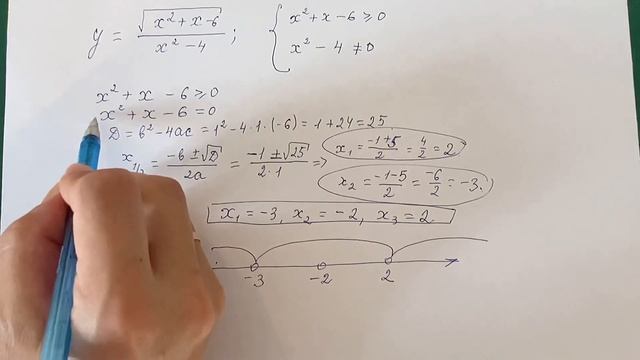 y = √(x²+x-6) / (x²-4) ; { x²+x-6≥0
x²-4 ≠0
x²+x-6≥0
x²+x-6=0
D=b²-4ac=1²-4·1·(-6)=1+24=25
x₁/₂ = (-b±√D)/2a = (-1±√25)/(2·1) => x₁=(-1+5)/2=4/2=2
x₂=(-1-5)/2=-6/2=-3.
x₁=-3, x₂=-2, x₃=2
-3 -2 2